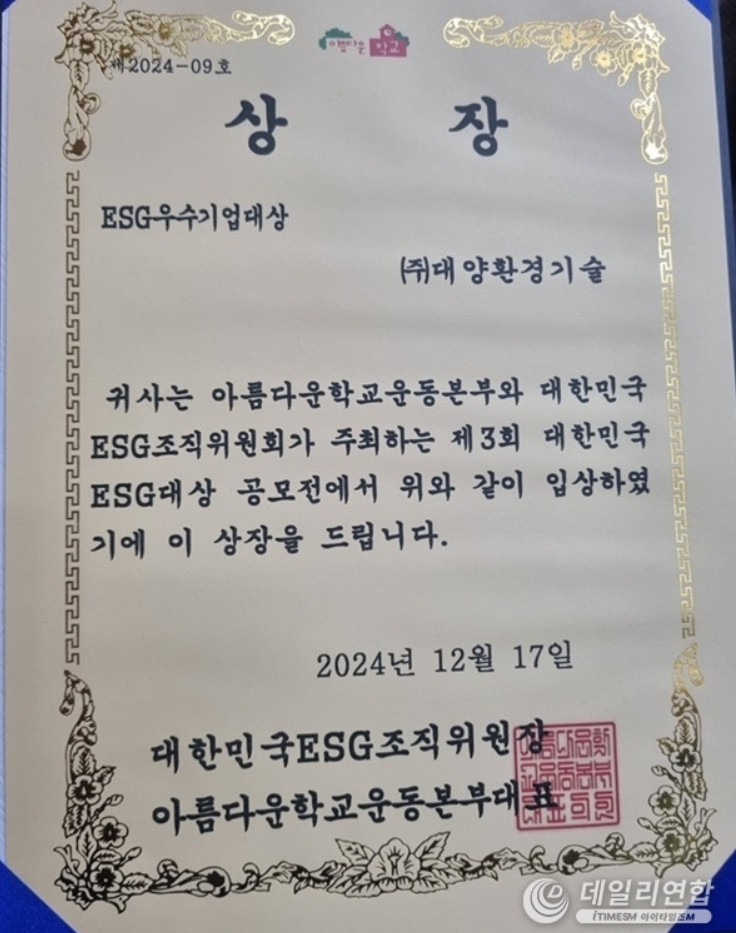 아름다운 학교
제2024-09호
상 장
ESG우수기업대상
(주)대양환경기술
귀사는 아름다운학교운동본부와 대한민국
ESG조직위원회가 주최하는 제3회 대한민국
ESG대상 공모전에서 위와 같이 입상하였
기에 이 상장을 드립니다.
2024년 12월 17일
대한민국ESG조직위원장
아름다운학교운동본부대표
데일리연합
iTIMESM 아이타임즈M